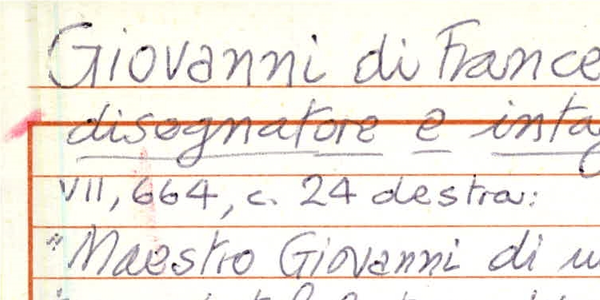 Giovanni di France
disegnatore e intag
VII, 664, c. 24 destra:
"Maestro Giovanni di